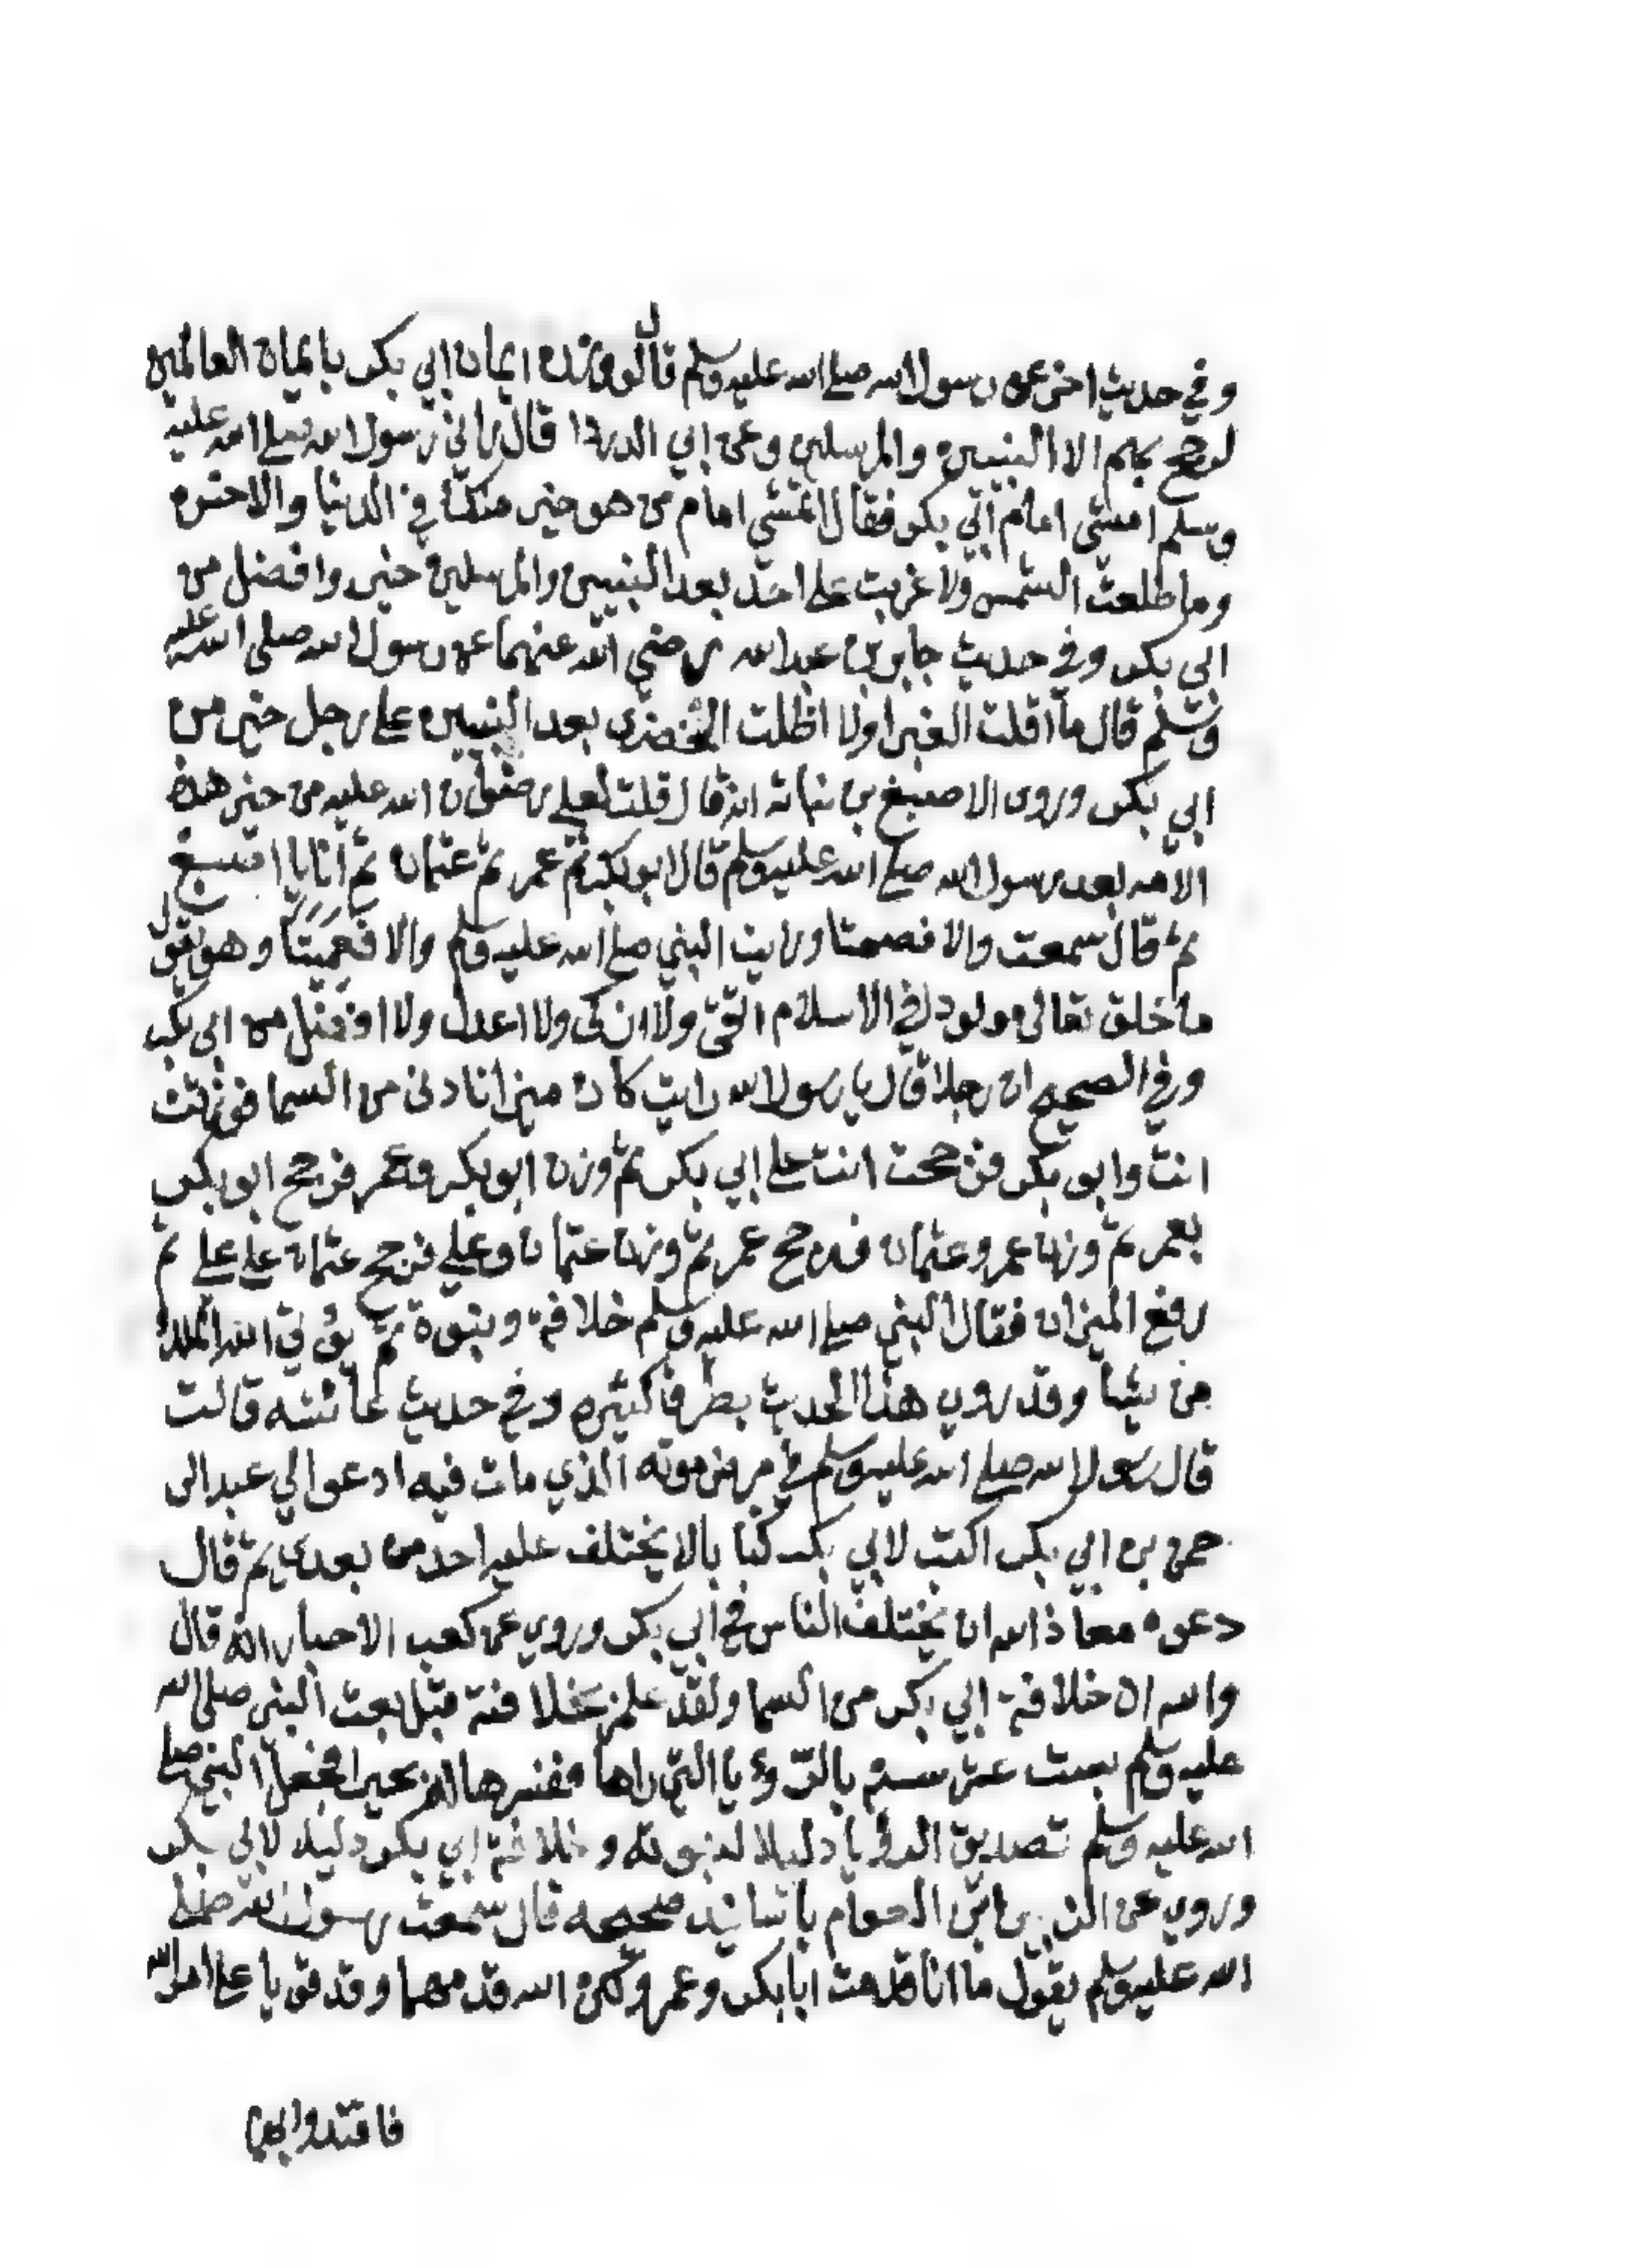 وفي حديث اخر عن رسول الله صلى الله عليه وسلم قال لو وزن ايمان ابي بكر بايمان العالمين
لرجح بهم الا النبيين والمرسلين وعن ابي الدردا قال راني رسول الله صلى الله عليه
وسلم امشي امام ابي بكر فقال اتمشي امام من هو خير منك في الدنيا والاخره
وما طلعت الشمس ولا غربت على احد بعد النبيين والمرسلين خير وافضل من
ابي بكر وفي حديث جابر بن عبد الله رضي الله عنهما عن رسول الله صلى الله عليه
وسلم قال ما اقلت الغبرا ولا اظلت الخضرى بعد النبيين على رجل خير من
ابي بكر وروى الاصبغ بن نباته انه قال قلت لعلي رضوان الله عليه من خير هذه
الامه بعد رسول الله صلى الله عليه وسلم قال ابو بكر ثم عمر ثم عثمان ثم انا يا اصبغ
ثم قال سمعت والا فصمتا ورايت النبي صلى الله عليه وسلم والا فعميتا وهو يقول
ما خلق تعالى مولود في الاسلام اتقى ولا ازكى ولا اعدل ولا افضل من ابي بكر
وفي الصحيح ان رجلا قال يا رسول الله رايت كان ميزانا دنى من السما فوزنت
انت وابو بكر فرجحت انت على ابي بكر ثم وزن ابو بكر وعمر فرجح ابو بكر
بعمر ثم وزن عمر وعثمان فرجح عمر ثم وزن عثمان وعلي فرجح عثمان على علي ثم
رفع الميزان فقال النبي صلى الله عليه وسلم خلافة ونبوة ثم يؤتي الله الملك
من يشا وقد روي هذا الحديث بطرق كثيره وفي حديث عائشه قالت
قال رسول الله صلى الله عليه وسلم في مرض موته الذي مات فيه ادعوا لي عبد الر
حمن بن ابي بكر اكتب لابي بكر كتابا لا يختلف عليه احد من بعدي ثم قال
دعوه معاذ الله ان يختلف الناس في ابي بكر وروي عن كعب الاحبار انه قال
والله ان خلافة ابي بكر من السما ولقد علم بخلافته قبل بعث النبي صلى الله
عليه وسلم بعشر سنة بالرؤيا التي راها ففسرها له بحيرا فجعل النبي صلى
الله عليه وسلم تصديق الرؤيا دليلا لنبوته وخلافة ابي بكر دليلا لابي بكر
وروي عن الزبير ابن العوام باسانيد صحيحه قال سمعت رسول الله صلى
الله عليه وسلم يقول ما انا قدمت ابا بكر وعمر ولكن الله قدمهما وقد قويا على امر الله
فاقتدوا بهما